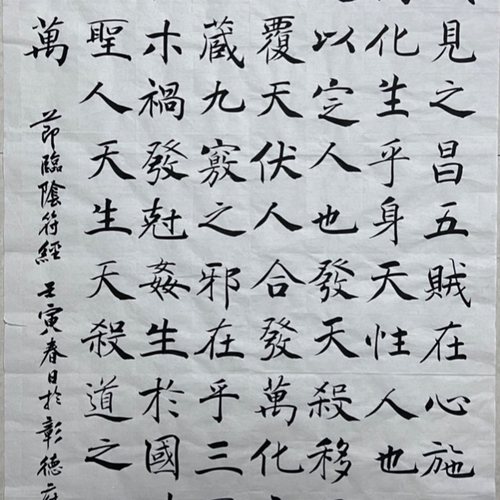 見之昌五賊在心施
化生乎身天性人也
以定人也發天殺移
覆天伏人合發萬化
蔵九竅之邪在乎三
木禍發尅姦生於國
聖人天生天殺道之
萬
莭臨陰符經 壬寅春日於彰德府